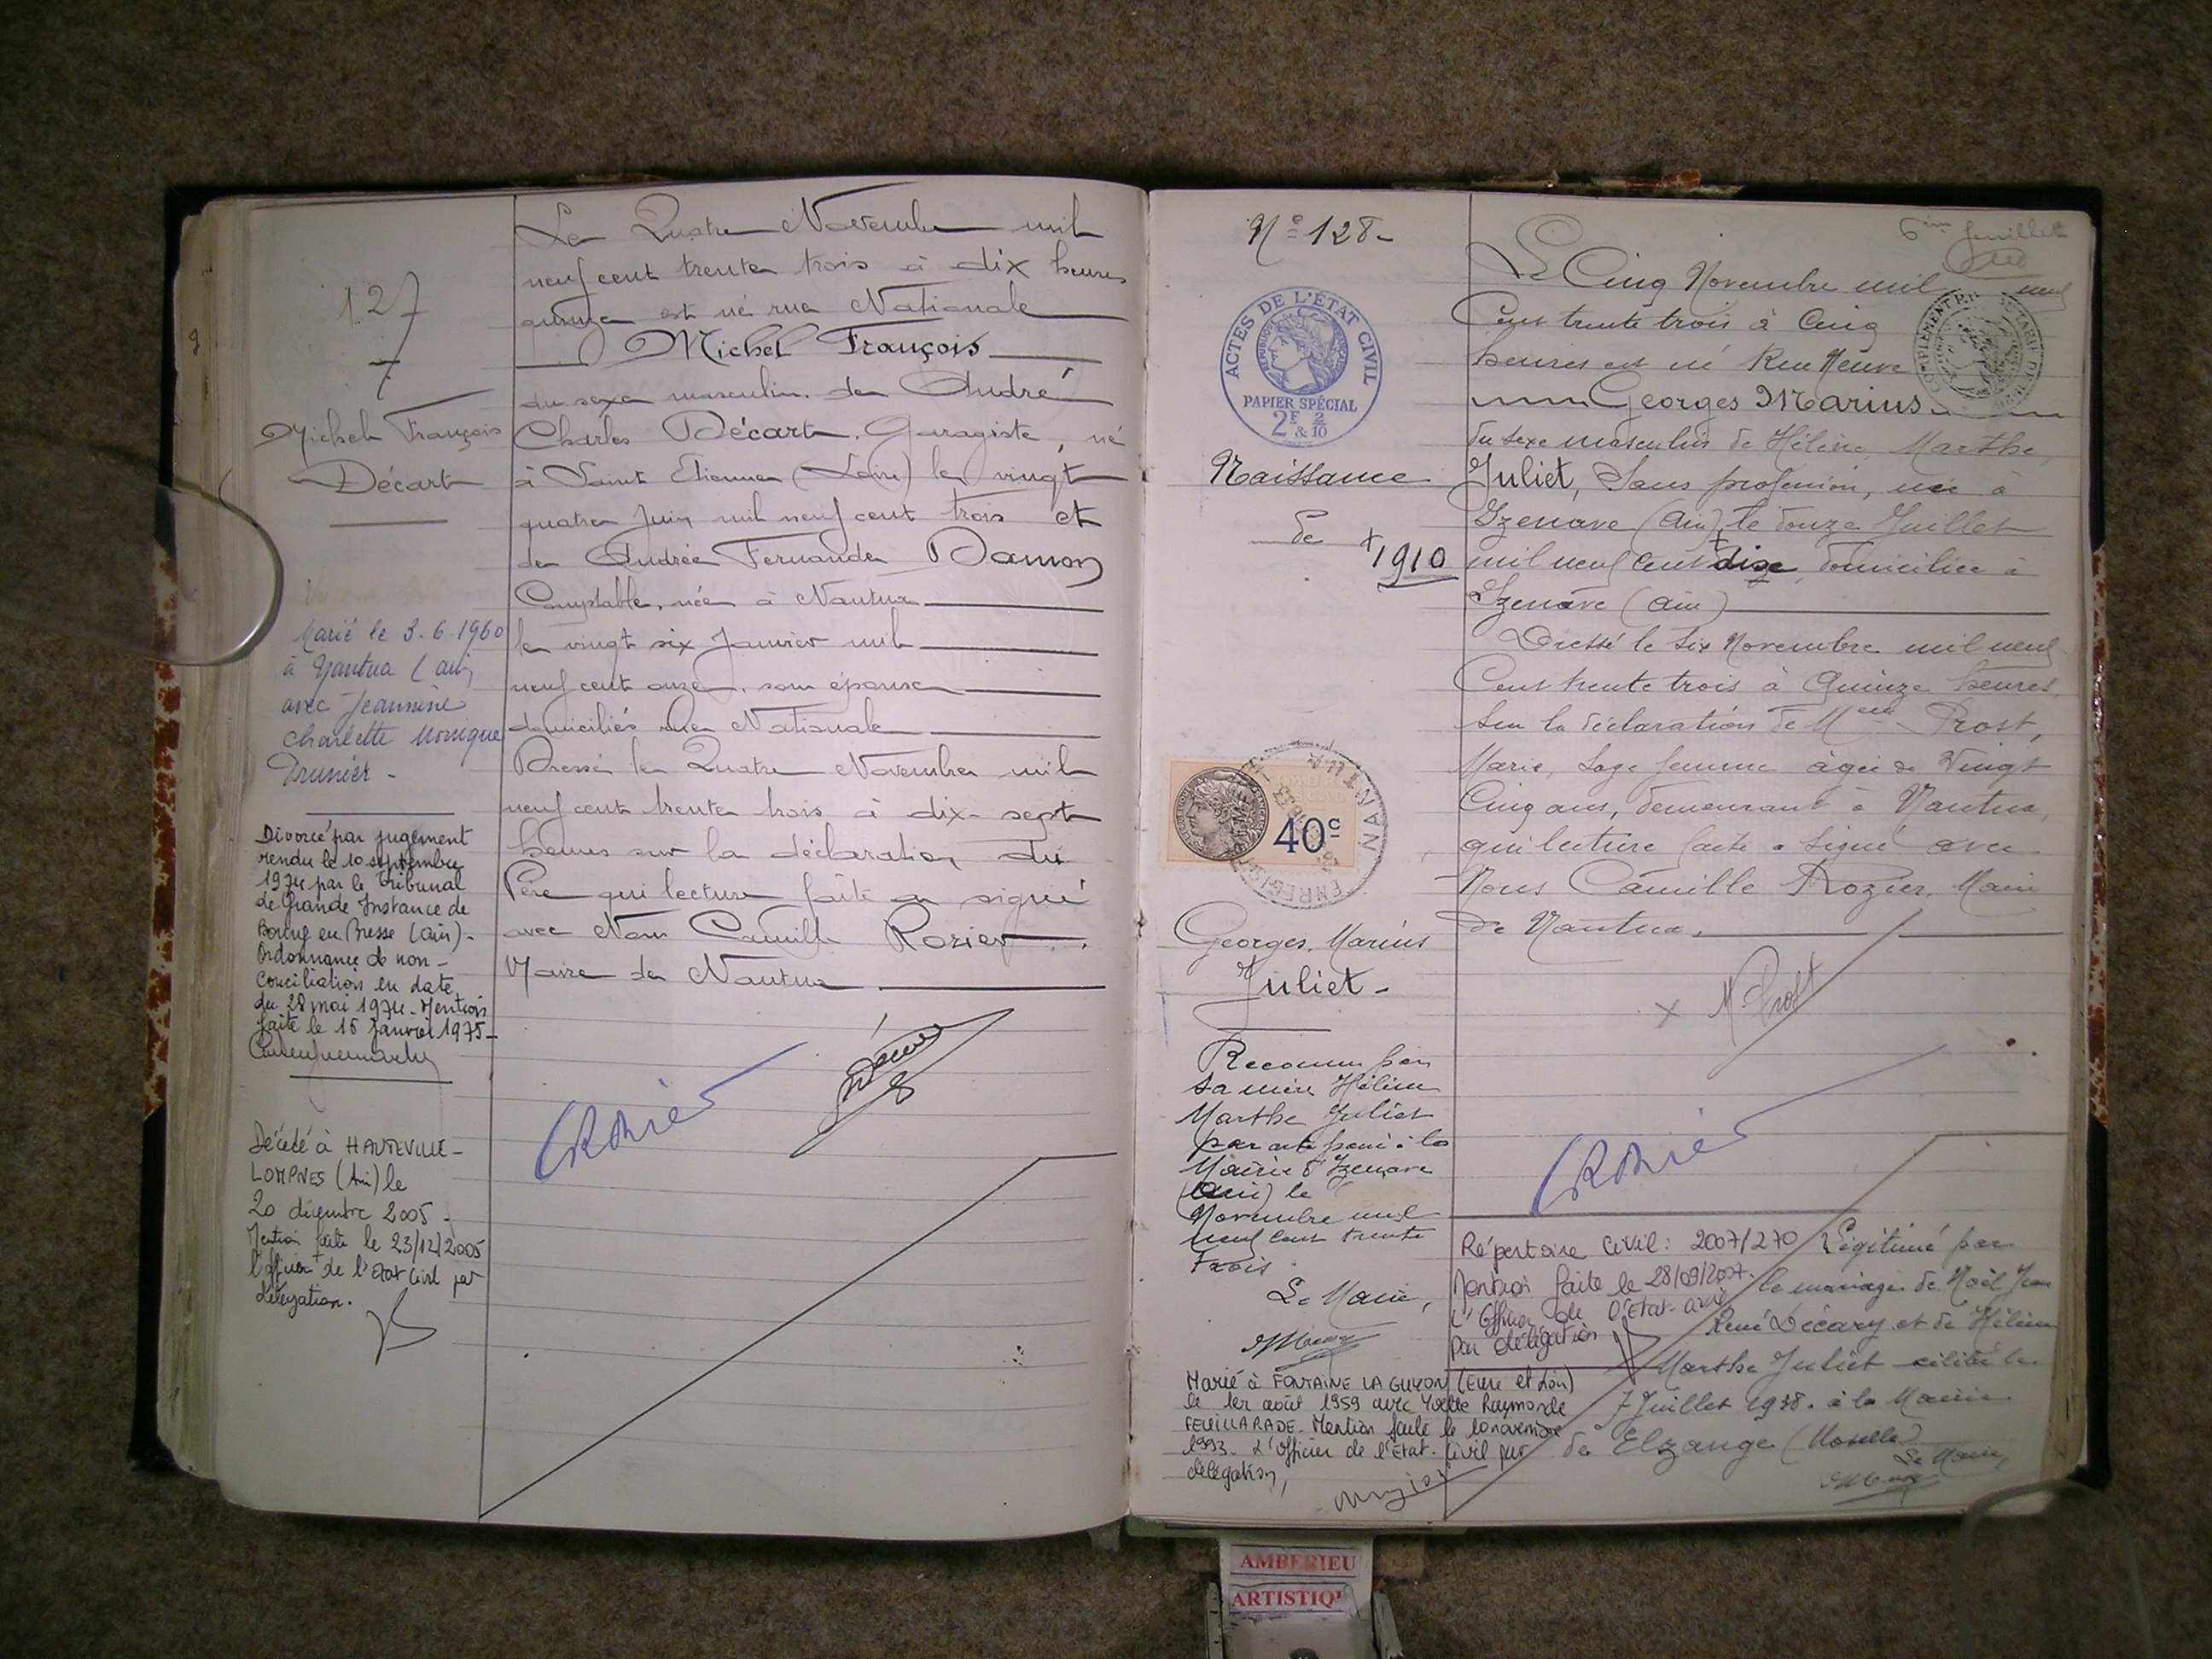 127
Michel François
Décart
Marié le 3.6.1960
à Nantua (Ain)
avec Jeannine
Charlette Monique
Prunier -
Divorcé par jugement
rendu le 10 septembre
1974 par le Tribunal
de Grande Instance de
Bourg en Bresse (Ain) -
Ordonnance de non -
Conciliation en date
du 28 mai 1974 - Mention
faite le 15 janvier 1975 -
Décédé à HAUTEVILLE -
LOMPNES (Ain) le
20 décembre 2005 -
Mention faite le 23/12/2005
l'officier de l'Etat Civil par
délégation.
Le Quatre Novembre mil
neuf cent trente trois à dix heures
quinze est né rue Nationale
Michel François
du sexe masculin. de André
Charles Décart. Garagiste, né
à Saint Etienne (Loire) le vingt
quatre Juin mil neuf cent trois et
de Andrée Fernande Damon
Comptable, née à Nantua
le vingt six Janvier mil
neuf cent onze, son épouse
domiciliés rue Nationale
Dressé le Quatre Novembre mil
neuf cent trente trois à dix-sept
heures sur la déclaration du
Père qui lecture faite a signé
avec Nous Camille Rozier
Maire de Nantua
N° 128-
ACTES DE L'ÉTAT CIVIL
RÉPUBLIQUE FRANÇAISE
PAPIER SPÉCIAL
2F & 2/10
Naissance
de
+ 1910
40c
Georges, Marius
Juliet -
Reconnu par
sa mère Hélène
Marthe Juliet
par acte passé à la
Mairie d'Izenave
(Ain) le
Novembre mil
neuf cent trente
trois.
Le Maire,
Marié à FONTAINE LA GUYON (Eure et Loir)
le 1er août 1959 avec Yvette Raymonde
FEUILLARADE. Mention faite le 10 novembre
1993 - L'Officier de l'Etat-Civil par
délégation,
6ème feuillet
Le Cinq Novembre mil neuf
Cent trente trois à Cinq
heures est né Rue Neuve
Georges Marius
du sexe masculin de Hélène, Marthe,
Juliet, Sans profession, née à
Izenave (Ain), le douze Juillet
mil neuf cent + dix, domiciliée à
Izenave (Ain)
Dressé le Six Novembre mil neuf
Cent trente trois à Quinze heures,
sur la déclaration de Prost,
Marie, Sage femme âgée de Vingt
Cinq ans, demeurant à Nantua,
qui lecture faite a signé avec
Nous Camille Rozier, Maire
de Nantua.
x M. Prost
Répertoire Civil : 2007/270
Mention faite le 28/09/2007.
L'Officier de l'Etat-civil
par délégation
Légitimé par
le mariage de Noël Jean
René Décary et de Hélène
Marthe Juliet célébré le
7 Juillet 1938. à la Mairie
de Elzange (Moselle)
Le Maire,
AMBERIEU
ARTISTIQ